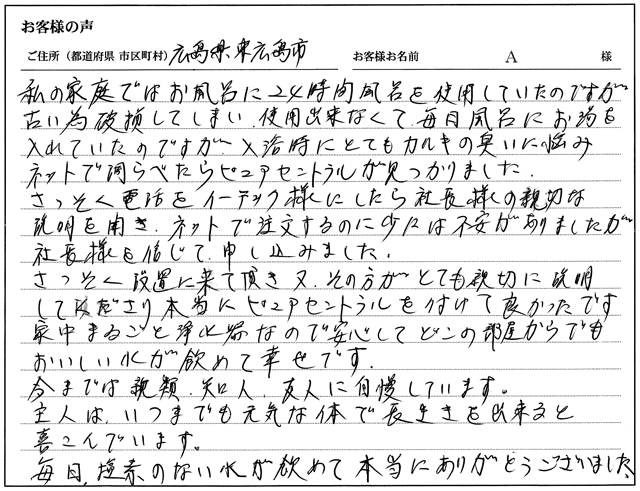 お客様の声
ご住所（都道府県 市区町村）広島県東広島市 お客様お名前 A 様
私の家庭ではお風呂に24時間風呂を使用していたのですが
古い為破損してしまい、使用出来なくて、毎日風呂にお湯を
入れていたのですが、入浴時にとてもカルキの臭いに悩み
ネットで調らべたらピュアセントラルが見つかりました。
さっそく電話をイーテック様にしたら社長様の親切な
説明を聞き、ネットで注文するのに少々は不安がありましたが
社長様を信じて、申し込みました。
さっそく設置に来て頂き又、その方がとても親切に説明
してくださり本当にピュアセントラルを付けて良かったです
家中まるごと浄水器なので安心してどこの部屋からでも
おいしい水が飲めて幸せです。
今までは親類、知人、友人に自慢しています。
主人は、いつまでも元気な体で長生きを出来ると
喜こんでいます。
毎日、塩素のない水が飲めて本当にありがとうございました。